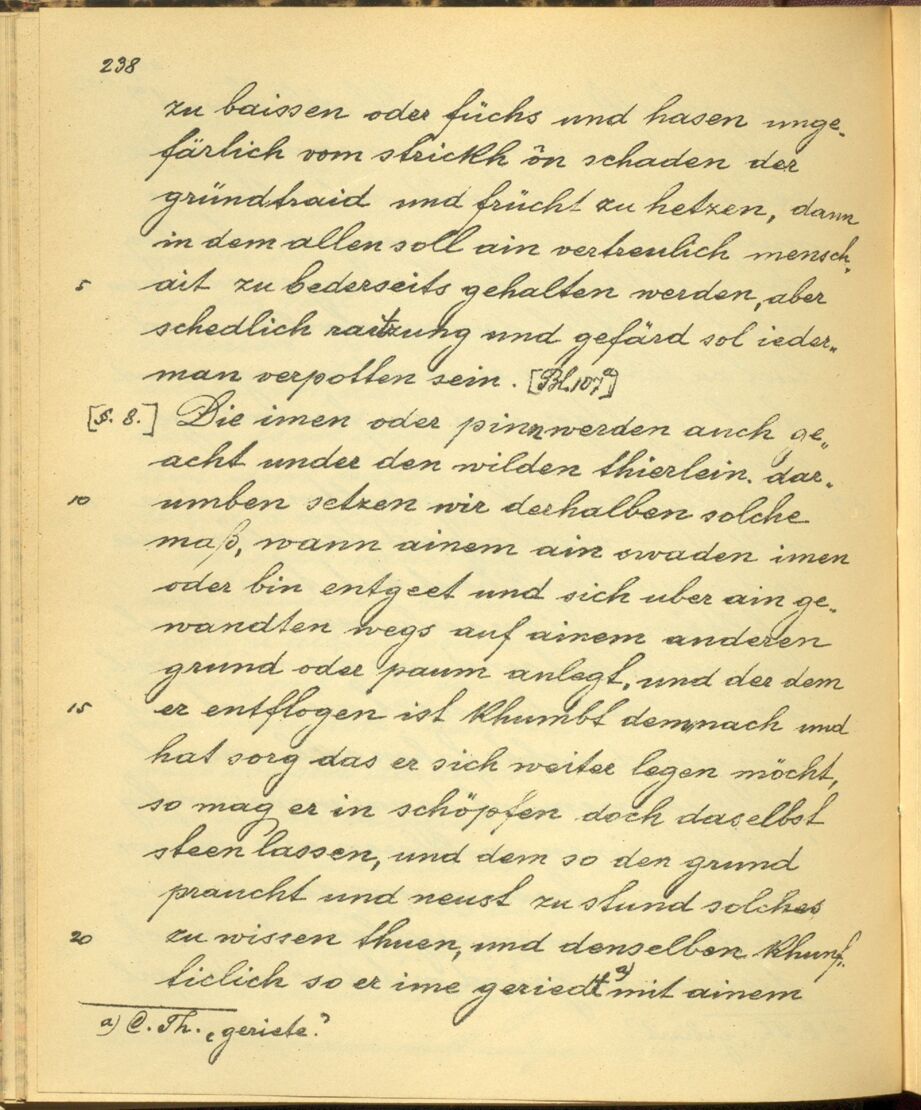 238
zu baissen oder füchs und hasen unge-
färlich vom strickh ôn schaden der
gründtraid und frücht zu hetzen, dann
in dem allen soll ain vertreulich mensch-
5 ait zu bederseits gehalten werden, aber
schedlich raitzung und gefärd sol ieder-
man verpotten sein. [Bl. 107a]
[§. 8.] Die imen oder pinn werden auch ge-
acht under den wilden thierlein. dar-
10 umben setzen wir derhalben solche
maß, wann ainem ain swaden imen
oder bin entgeet und sich uber ain ge-
wandten wegs auf ainem anderen
grund oder paum anlegt, und der dem
15 er entflogen ist khumbt demnach und
hat sorg das er sich weiter legen möcht,
so mag er in schöpfen doch daselbst
steen lassen, und dem so den grund
praucht und neust zu stund solches
20 zu wissen thuen, und denselben khunf-
ticlich so er ime geriedt a) mit ainem
a) C. Th. „geriete“